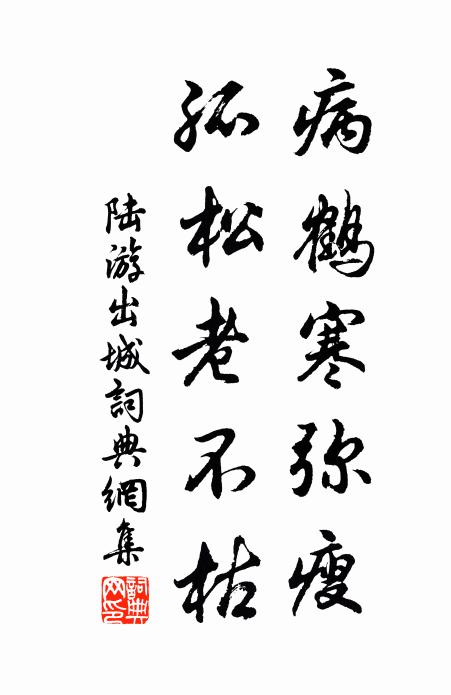 病鹤寒弥瘦
孤松老不枯
陆游出城詞典網集
詞典網印